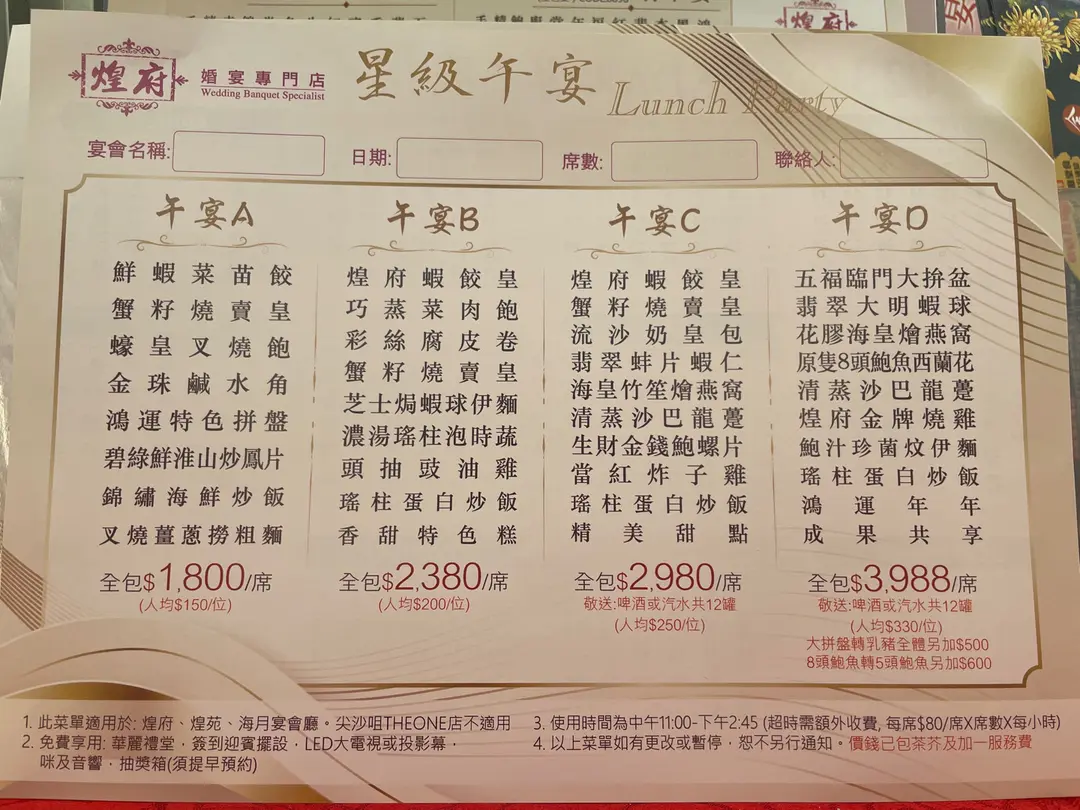 煌府
婚宴專門店
Wedding Banquet Specialist
星級午宴
Lunch Party
宴會名稱:
日期:
席數:
聯絡人:
午宴A
鮮蝦菜苗餃
蟹籽燒賣皇
蠔皇叉燒飽
金珠鹹水角
鴻運特色拼盤
碧綠鮮淮山炒鳳片
錦繡海鮮炒飯
叉燒薑蔥撈粗麵
全包$1,800/席
(人均$150/位)
午宴B
煌府蝦餃皇
巧蒸菜肉飽
彩絲腐皮卷
蟹籽燒賣皇
芝士焗蝦球伊麵
濃湯瑤柱泡時蔬
頭抽豉油雞
瑤柱蛋白炒飯
香甜特色糕
全包$2,380/席
(人均$200/位)
午宴C
煌府蝦餃皇
蟹籽燒賣皇
流沙奶皇包
翡翠蚌片蝦仁
海皇竹笙燴燕窩
清蒸沙巴龍躉
生財金錢鮑螺片
當紅炸子雞
瑤柱蛋白炒飯
精美甜點
全包$2,980/席
敬送:啤酒或汽水共12罐
(人均$250/位)
午宴D
五福臨門大拚盆
翡翠大明蝦球
花膠海皇燴燕窩
原隻8頭鮑魚西蘭花
清蒸沙巴龍躉
煌府金牌燒雞
鮑汁珍菌炆伊麵
瑤柱蛋白炒飯
鴻運年年
成果共享
全包$3,988/席
敬送:啤酒或汽水共12罐
(人均$330/位)
大拼盤轉乳豬全體另加$500
8頭鮑魚轉5頭鮑魚另加$600
1. 此菜單適用於: 煌府、煌苑、海月宴會廳。尖沙咀THEONE店不適用
2. 免費享用: 華麗禮堂，簽到迎賓擺設，LED大電視或投影幕，
咪及音響，抽獎箱(須提早預約)
3. 使用時間為中午11:00-下午2:45 (超時需額外收費, 每席$80/席X席數X每小時)
4. 以上菜單如有更改或暫停，恕不另行通知。價錢已包茶芥及加一服務費